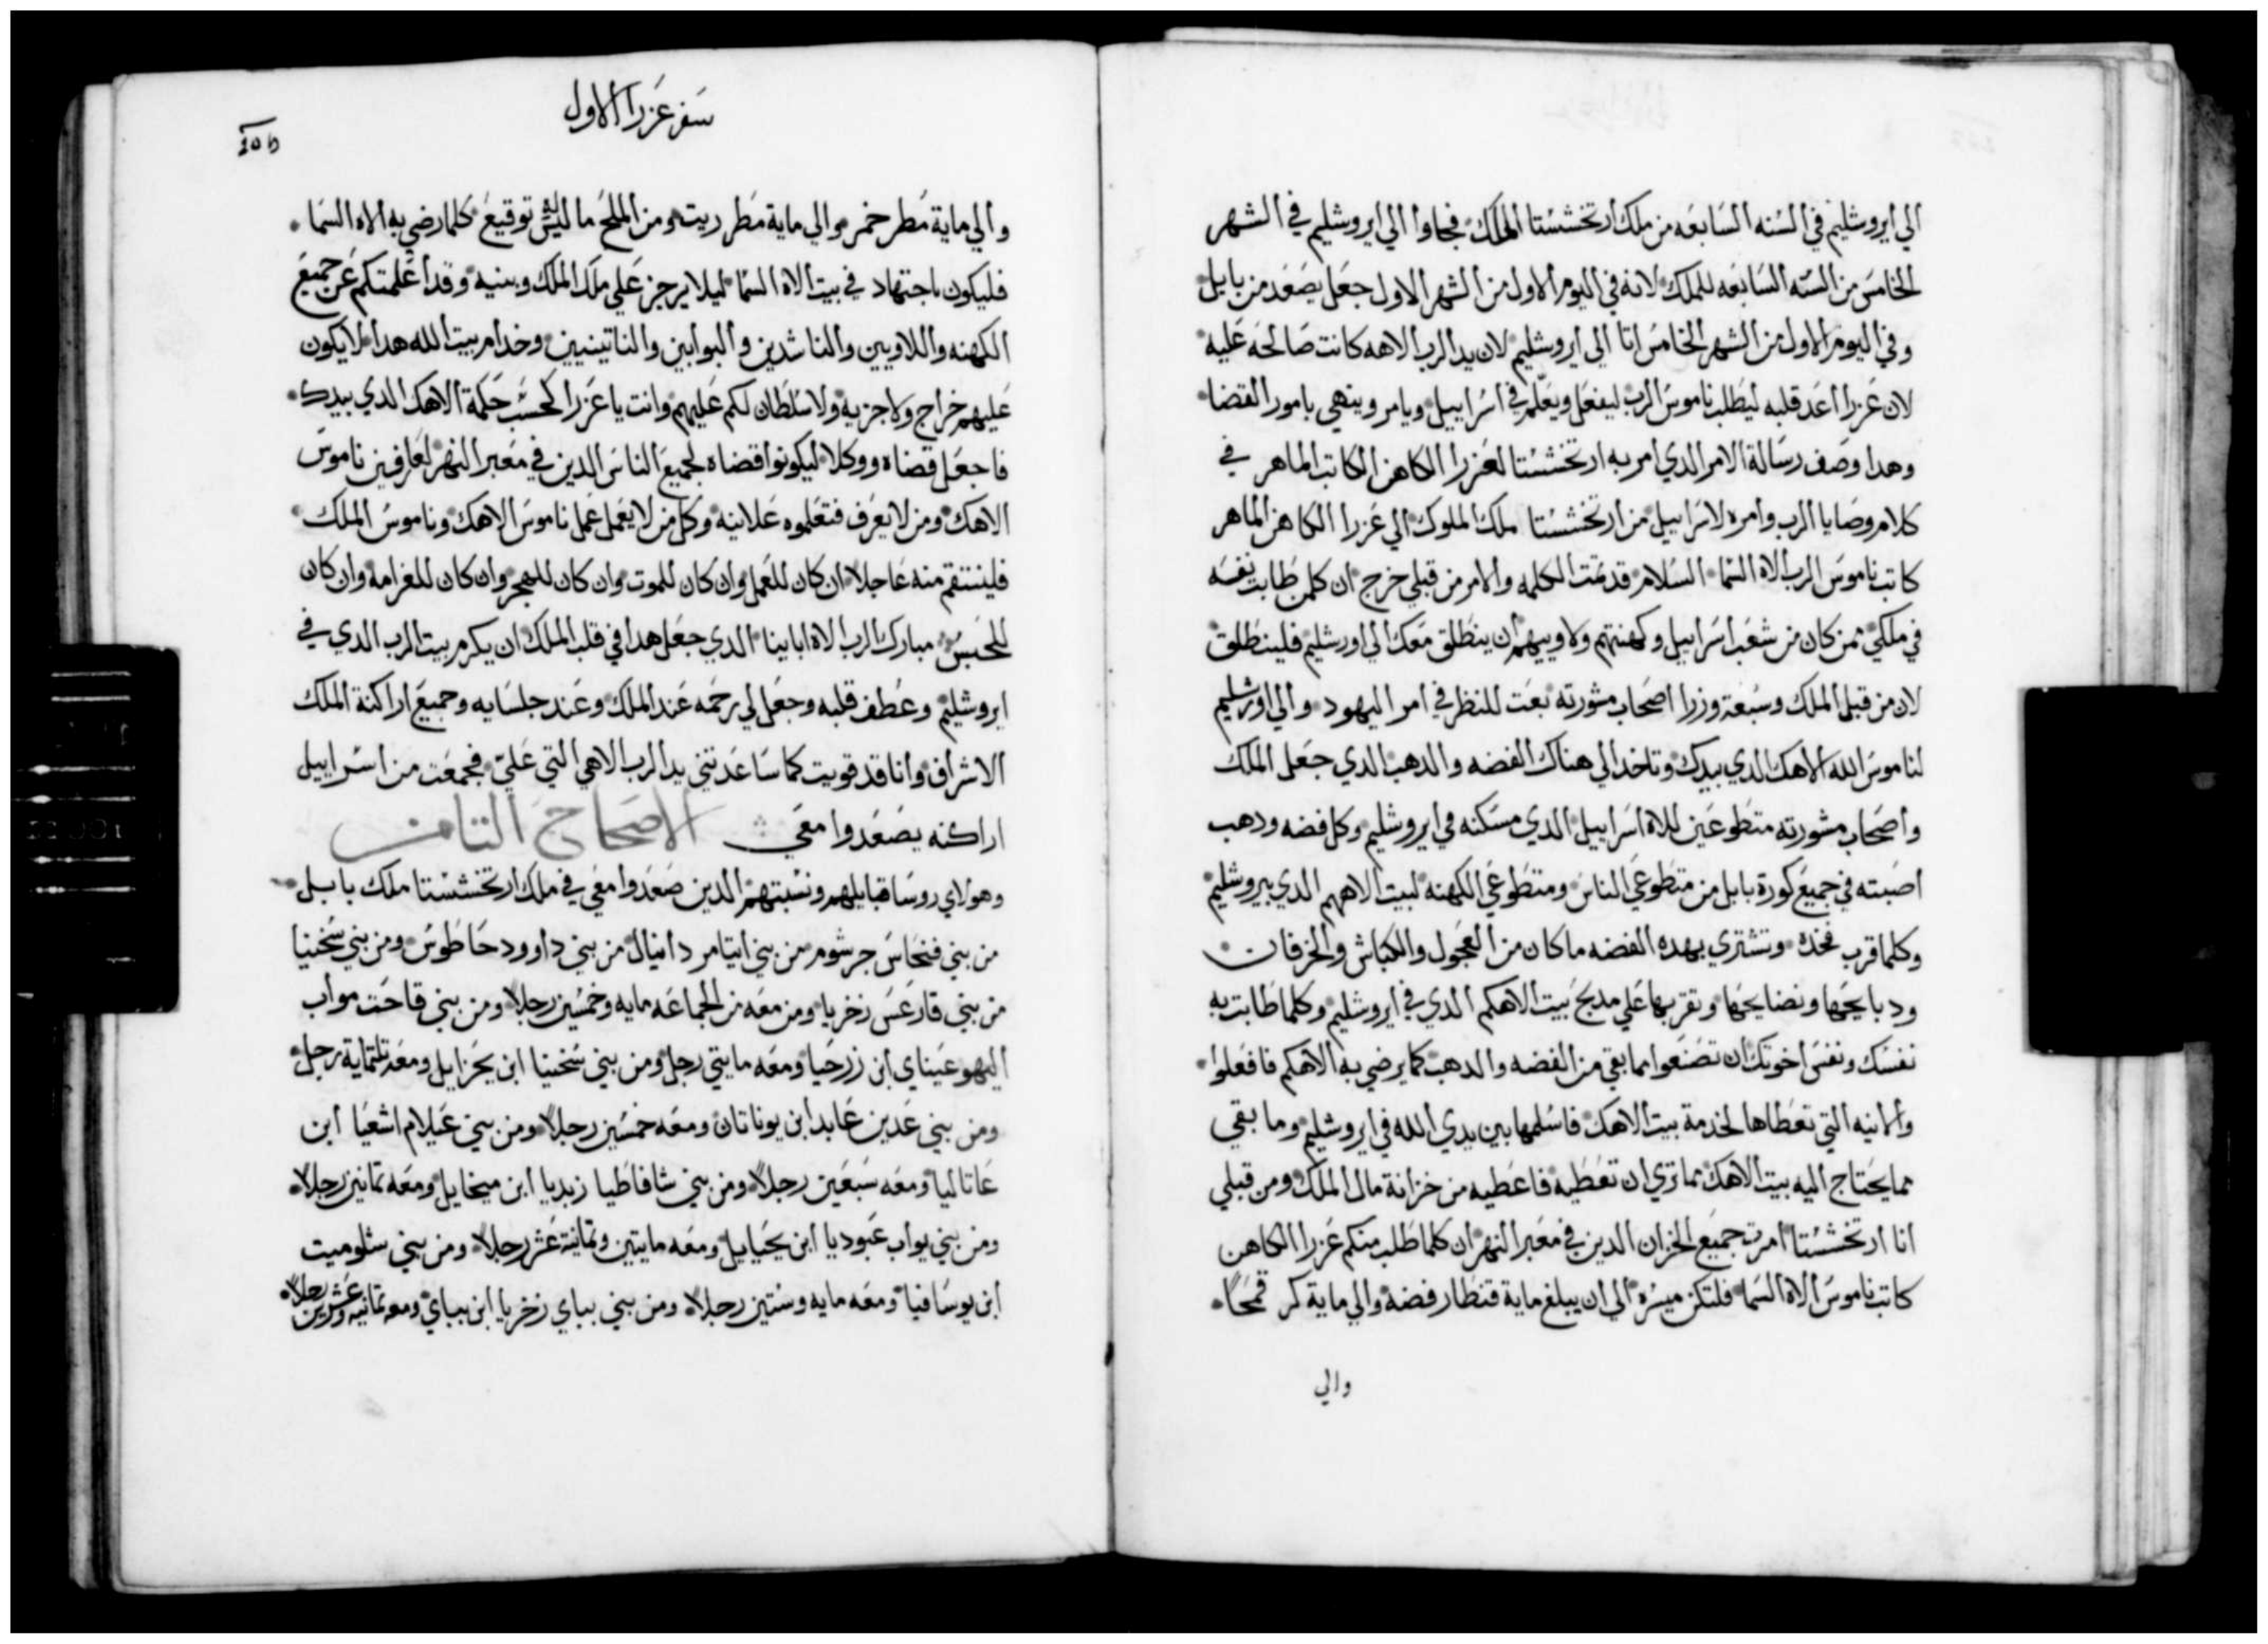 الي ايروشليم في السنه السابعه من ملك ارتخششتا الملك فجاوا الي ايروشليم في الشهر
الخامس من السنه السابعه للملك لانه في اليوم الاول من الشهر الاول جعل يصعد من بابل
وفي اليوم الاول من الشهر الخامس اتا الي ايروشليم لان يد الرب الاهه كانت صالحه عليه
لان عزرا اعد قلبه ليطلب ناموس الرب ليفعل ويعلم في اسراييل ويامر وينهي بامور القضا
وهدا وصف رسالة الامر الدي امر به ارتخششتا لعزرا الكاهن الكاتب الماهر في
كلام وصايا الرب وامره لاسراييل من ارتخششتا ملك الملوك الي عزرا الكاهن الماهر
كاتب ناموس الرب الاه السما السلام قد تمت الكلمه والامر من قبلي خرج ان كلمن طابت نفسه
في ملكي ممن كان من شعب اسراييل وكهنتهم ولاوييهم ان ينطلق معك الي اورشليم فلينطلق
لان من قبل الملك وسبعة وزرا اصحاب مشورته بعت للنظر في امر اليهود والي اورشليم
لناموس الله الاهك الدي بيدك وتاخد الي هناك الفضه والدهب الدي جعل الملك
واصحاب مشورته متطوعين للاه اسراييل الدي مسكنه في ايروشليم وكل فضه ودهب
اصبته في جميع كورة بابل من متطوعي الناس ومتطوعي الكهنه لبيت الاههم الدي بيروشليم
وكلما قرب فخده وتشتري بهده الفضه ما كان من العجول والكباش والخرفان
ودبايحها ونضايحها وتقربها علي مدبح بيت الاهكم الدي في ايروشليم وكلما طابت به
نفسك ونفس اخوتك ان تصنعوا مما بقي من الفضه والدهب كما يرضي به الاهكم فافعلوا
والانيه التي تعطاها لخدمة بيت الاهك فاسلمها بين يدي الله في ايروشليم وما بقي
مما يحتاج اليه بيت الاهك مما تري ان تعطيه فاعطيه من خزانة مال الملك ومن قبلي
انا ارتخششتا امرت جميع الخزان الدين في معبر النهر ان كلما طلب منكم عزرا الكاهن
كاتب ناموس الاه السما فلتكن ميسره الي ان يبلغ ماية قنطار فضه والي ماية كر قمحا
والي
سفر عزرا الاول
والي ماية مطر خمر والي ماية مطر زيت ومن الملح ما ليس توقيع كلما رضي به الاه السما
فليكون باجتهاد في بيت الاه السما ليلا يرجز علي ملك الملك وبنيه وقد اعلمتكم عن جميع
الكهنه واللاويين والناشدين والبوابين والناتينيين وخدام بيت الله هدا لا يكون
عليهم خراج ولا جزيه ولا سلطان لكم عليهم وانت يا عزرا كحسب حكمة الاهك الدي بيدك
فاجعل قضاه ووكلا ليكونوا قضاه لجميع الناس الدين في معبر النهر لعارفين ناموس
الاهك ومن لا يعرف فتعلموه علانيه وكل من لا يعمل عمل ناموس الاهك وناموس الملك
فلينتقم منه عاجلا ان كان للعمل وان كان للموت وان كان للهجر وان كان للغرامه وان كان
للحبس مبارك الرب الاه ابايينا الدي جعل هدا في قلب الملك ان يكرم بيت الرب الدي في
ايروشليم وعطف قلبه وجعل لي رحمه عند الملك وعند جلسايه وجميع اراكنة الملك
الاشراف وانا قد قويت كما ساعدتني يد الرب الاهي التي علي فجمعت من اسراييل
اراكنه يصعدوا معي الاصحاح التامن
وهولاي روسا قبايلهم ونسبتهم الدين صعدوا معي في ملك ارتخششتا ملك بابل
من بني فنحاس جرشوم من بني ايتامر دانيال من بني داوود حاطوس ومن بني سخنيا
من بني فارعس زخريا ومن معه من الجماعه مايه وخمسين رجلا ومن بني فاحت مواب
اليهوعيناي ابن زرحيا ومعه مايتي رجل ومن بني سخنيا ابن يحزاييل ومعه تلتماية رجل
ومن بني عدين عابد ابن يوناتان ومعه خمسين رجلا ومن بني عيلام اشعيا ابن
عاتاليا ومعه سبعين رجلا ومن بني شافاطيا زبديا ابن ميخاييل ومعه تمانين رجلا
ومن بني يواب عبوديا ابن يحياييل ومعه مايتين وتمانية عشر رجلا ومن بني شلوميت
ابن يوسافيا ومعه مايه وستين رجلا ومن بني بباي زخريا ابن بباي ومعه تمانيه وعشرين رجلا